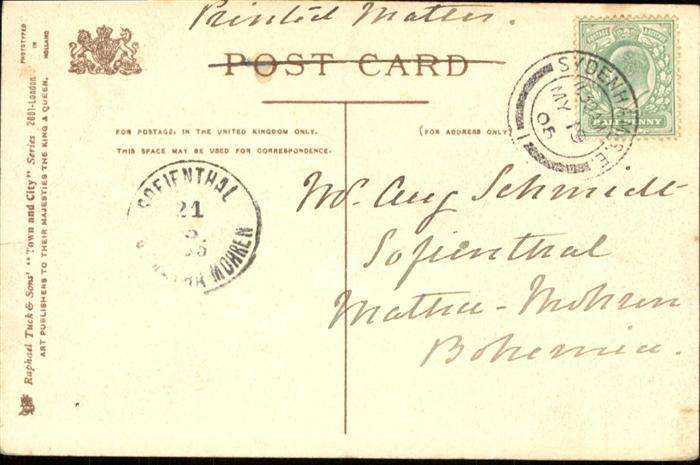 Printed Matter.
POST CARD
FOR POSTAGE, IN THE UNITED KINGDOM ONLY.
THIS SPACE MAY BE USED FOR CORRESPONDENCE.
(FOR ADDRESS ONLY
PHOTOTYPED
IN
HOLLAND
Raphael Tuck & Sons' "Town and City" Series 2001-London
ART PUBLISHERS TO THEIR MAJESTIES THE KING & QUEEN.
POSTAGE
HALF PENNY
SYDENHAM S.E.
MY 19
05
SOFIENTHAL
21
5
05
MOHREN
Aug Schmidt
Sofienthal
Mohren
Bohemia.